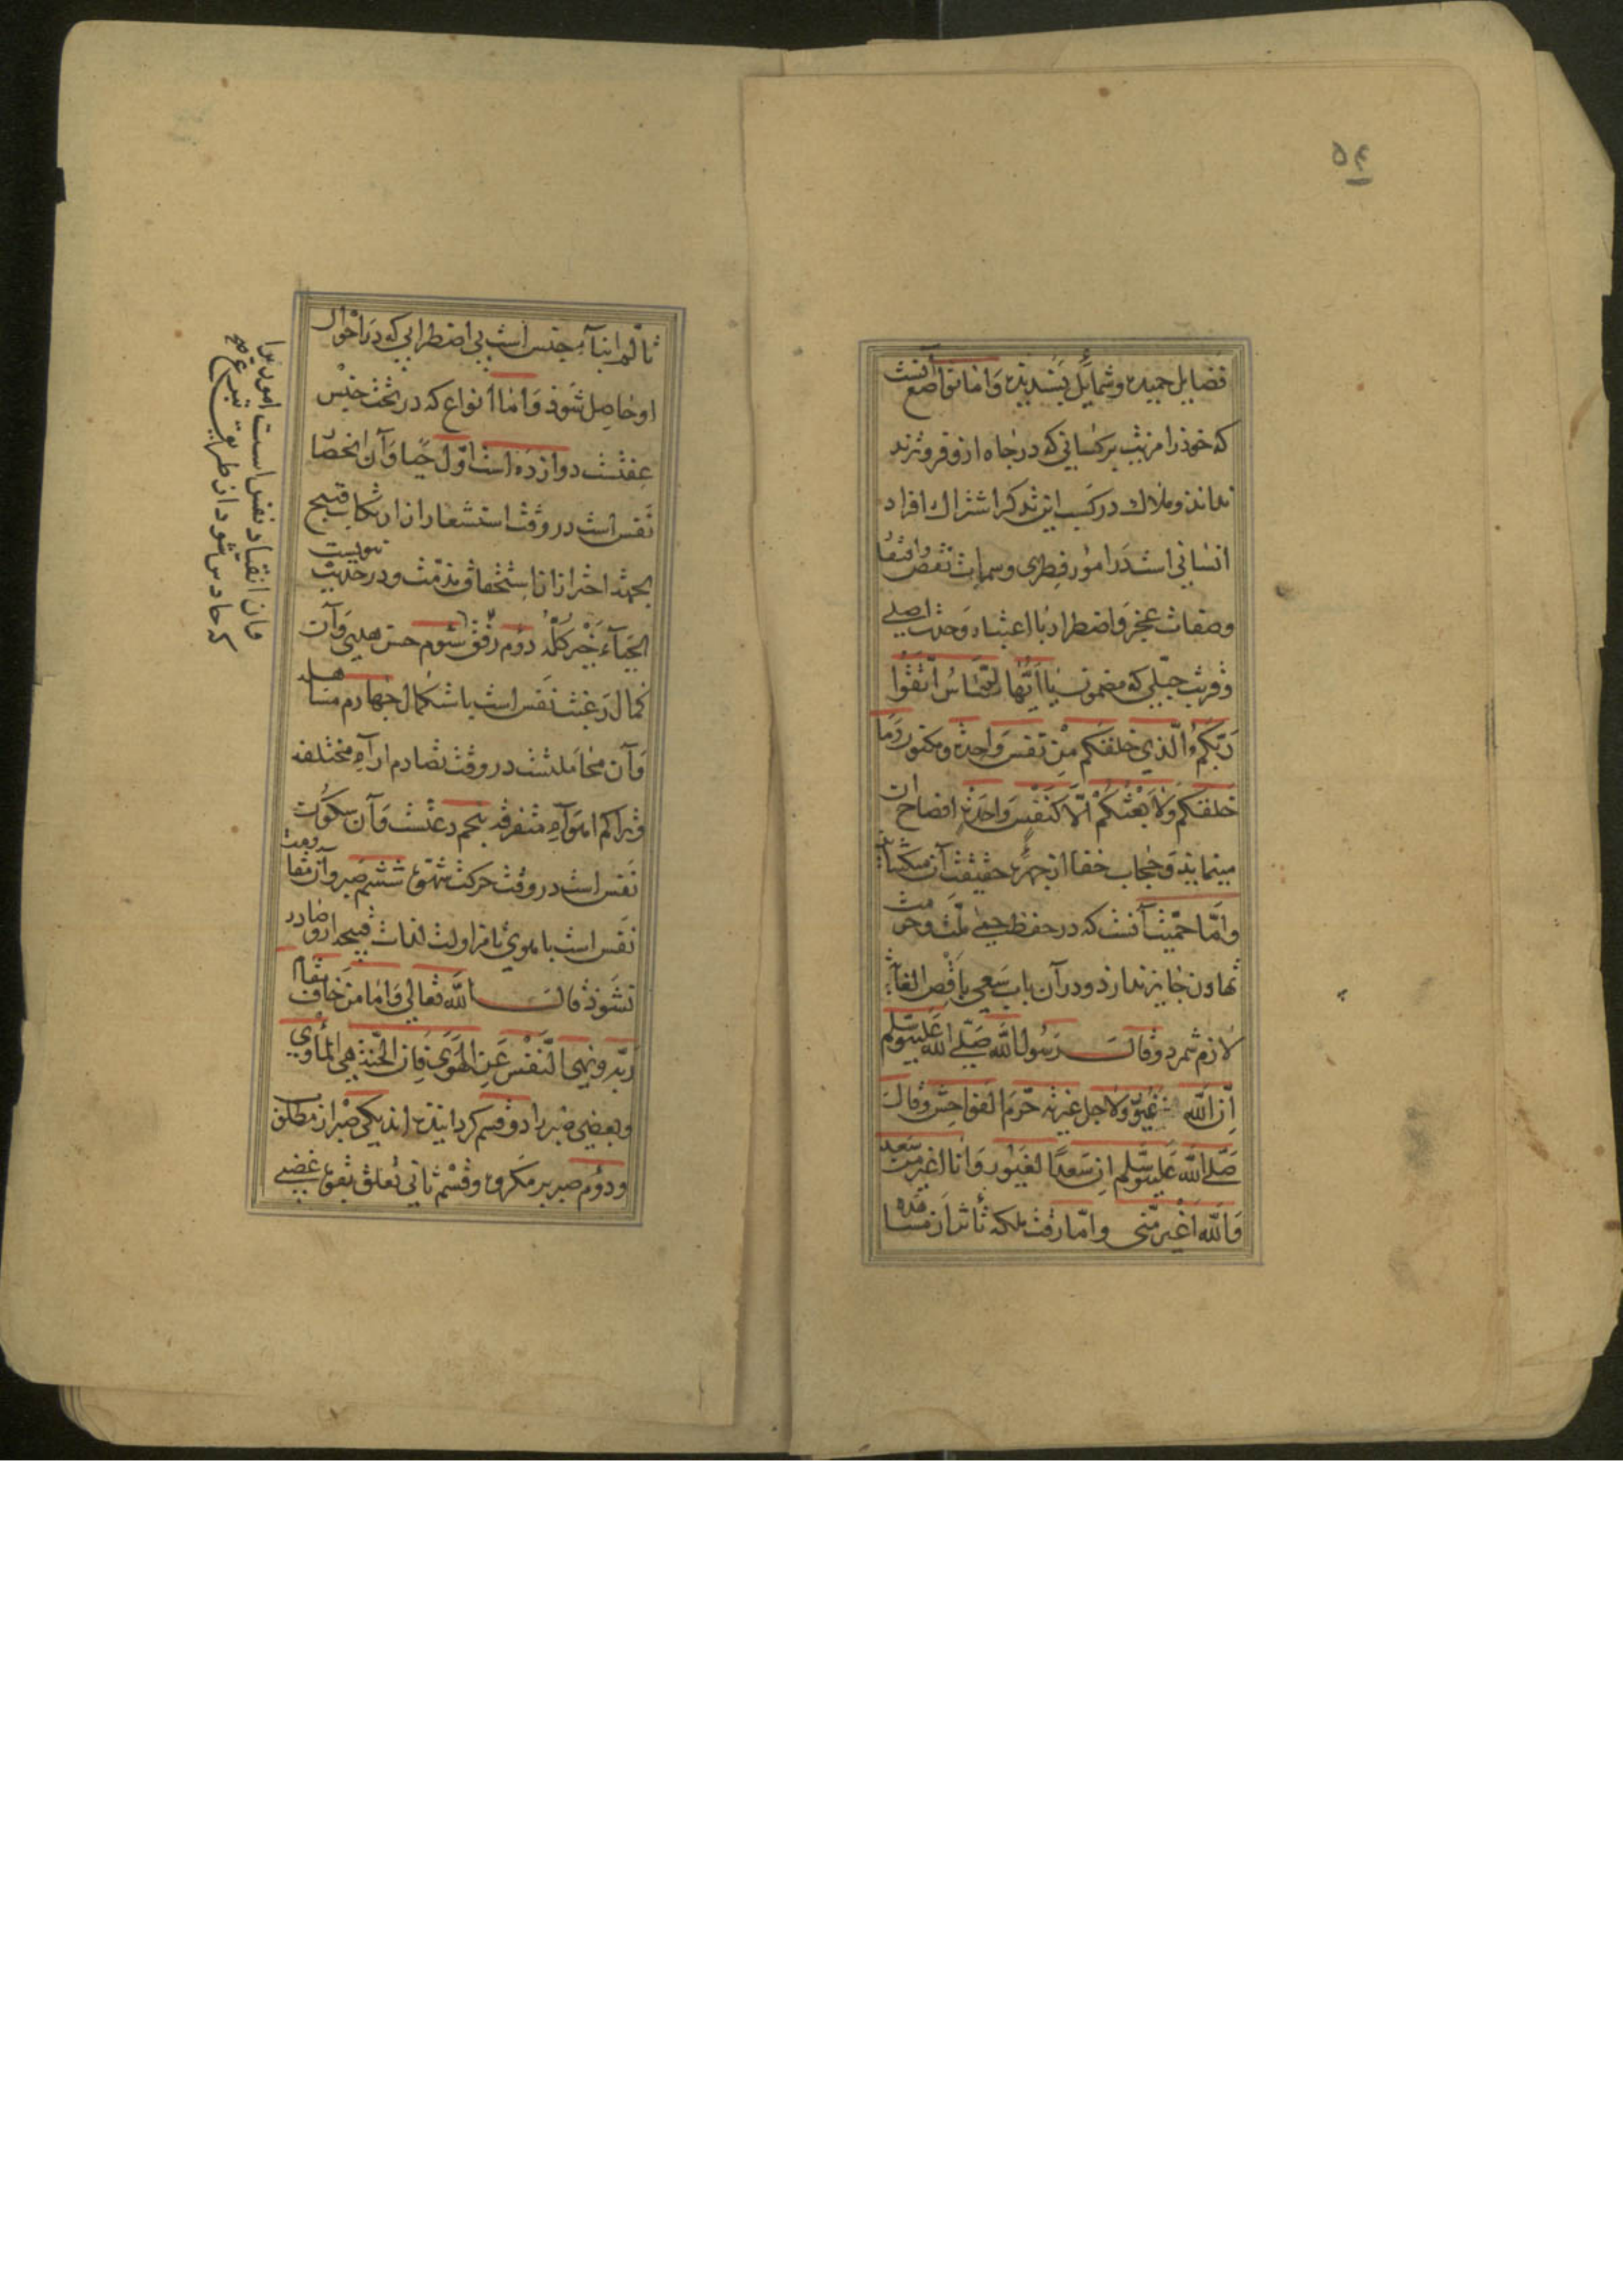 ۵۴
فضایل حمیده و شمایل پسندیده و اما تواضع آنست
که خود را مزیت بر کسانی که در جاه ازو فروترند
نداند و ملاک در کسب این تذکر اشتراک افراد
انسانی است در امور فطری و سمات نقص و افتقار
وصفات عجز و اضطرار با اعتبار وحدت اصلی
وقربت جبلی که مضمون یا ایها الناس اتقوا
ربکم الذی خلقکم من نفس واحدة و مکنون و ما
خلقکم ولا بعثکم الا کنفس واحدة افصاح ان
مینماید و حجاب خفا از چهره حقیقت آن میکشاید
واما حمیت آنست که در حفظ حمی ملت و حرمت
تهاون جایز ندارد و در آن باب سعی باقصی الغایة
لازم شمرد و قال رسول الله صلی الله علیه وسلم
ان الله غیور ولاجل غیرته حرم الفواحش وقال
صلی الله علیه وسلم ان سعدا لغیور وانا اغیر من سعد
والله اغیر منی واما رقت ملکه تأثر از مشاهده
تألم ابناء جنس است بی اضطرابی که در احوال
او حاصل شود و اما انواع که در تحت جنس
عفتست دوازده است اول حیا و آن انحصار
نفس است در وقت استشعار از ارتکاب قبیح
بجهة احتراز از استحقاق مذمت و در حدیث نبویست
الحیاء خیر کله دوم رفق سوم حسن هدی و آن
کمال رغبت نفس است باستکمال چهارم مسالمه
وآن مجاملتست در وقت تصادم آراء مختلفه
وتراکم اهواء متفرقه پنجم دعتست و آن سکون
نفس است در وقت حرکت شهوت ششم صبر و آن مقاومت
نفس است با هوی تا مزاولت لذات قبیحه ازو صادر
نشود قال الله تعالی و اما من خاف مقام
ربه ونهی النفس عن الهوی فان الجنة هی المأوی
وبعضی صبر را دو قسم کردانیده اند یکی صبر از مطلوب
ودوم صبر بر مکروه و قسم ثانی تعلق بقوة غضبی
وآن انقیاد نفس است امور را
که حادث شود از طریق تبرع